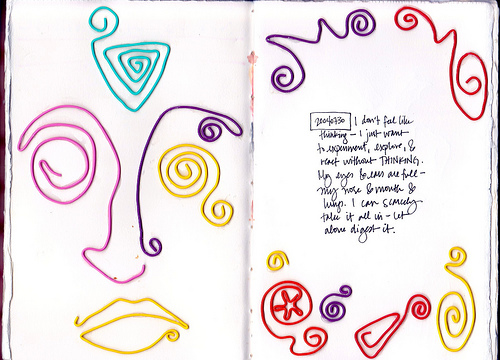 20040730 I don't feel like
thinking - I just want
to experiment, explore, &
react without THINKING.
My eyes & ears are full -
my nose & mouth &
lungs. I can scarcely
take it all in - let
alone digest it.